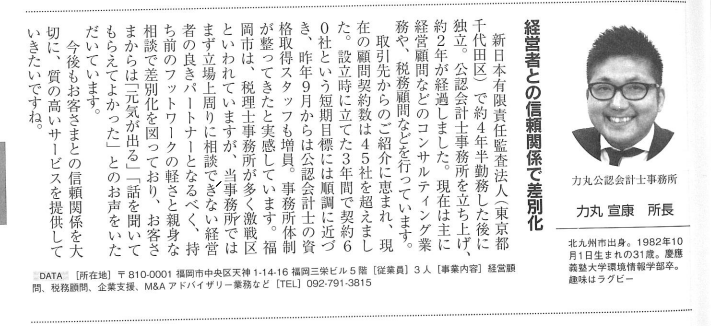 力丸公認会計士事務所
力丸 宣康　所長
北九州市出身。1982年10
月1日生まれの31歳。慶應
義塾大学環境情報学部卒。
趣味はラグビー
経営者との信頼関係で差別化
　新日本有限責任監査法人（東京都
千代田区）で約4年半勤務した後に
独立。公認会計士事務所を立ち上げ、
約2年が経過しました。現在は主に
経営顧問などのコンサルティング業
務や、税務顧問などを行っています。
　取引先からのご紹介に恵まれ、現
在の顧問契約数は45社を超えまし
た。設立時に立てた3年間で契約6
0社という短期目標には順調に近づ
き、昨年9月からは公認会計士の資
格取得スタッフも増員。事務所体制
が整ってきたと実感しています。福
岡市は、税理士事務所が多く激戦区
といわれていますが、当事務所では
まず立場上周りに相談できない経営
者の良きパートナーとなるべく、持
ち前のフットワークの軽さと親身な
相談で差別化を図っており、お客さ
まからは「元気が出る」「話を聞いて
もらえてよかった」とのお声をいた
だいています。
　今後もお客さまとの信頼関係を大
切に、質の高いサービスを提供して
いきたいですね。
DATA ［所在地］〒810-0001 福岡市中央区天神1-14-16 福岡三栄ビル5階［従業員］3人［事業内容］経営顧
問、税務顧問、企業支援、M&Aアドバイザリー業務など［TEL］092-791-3815